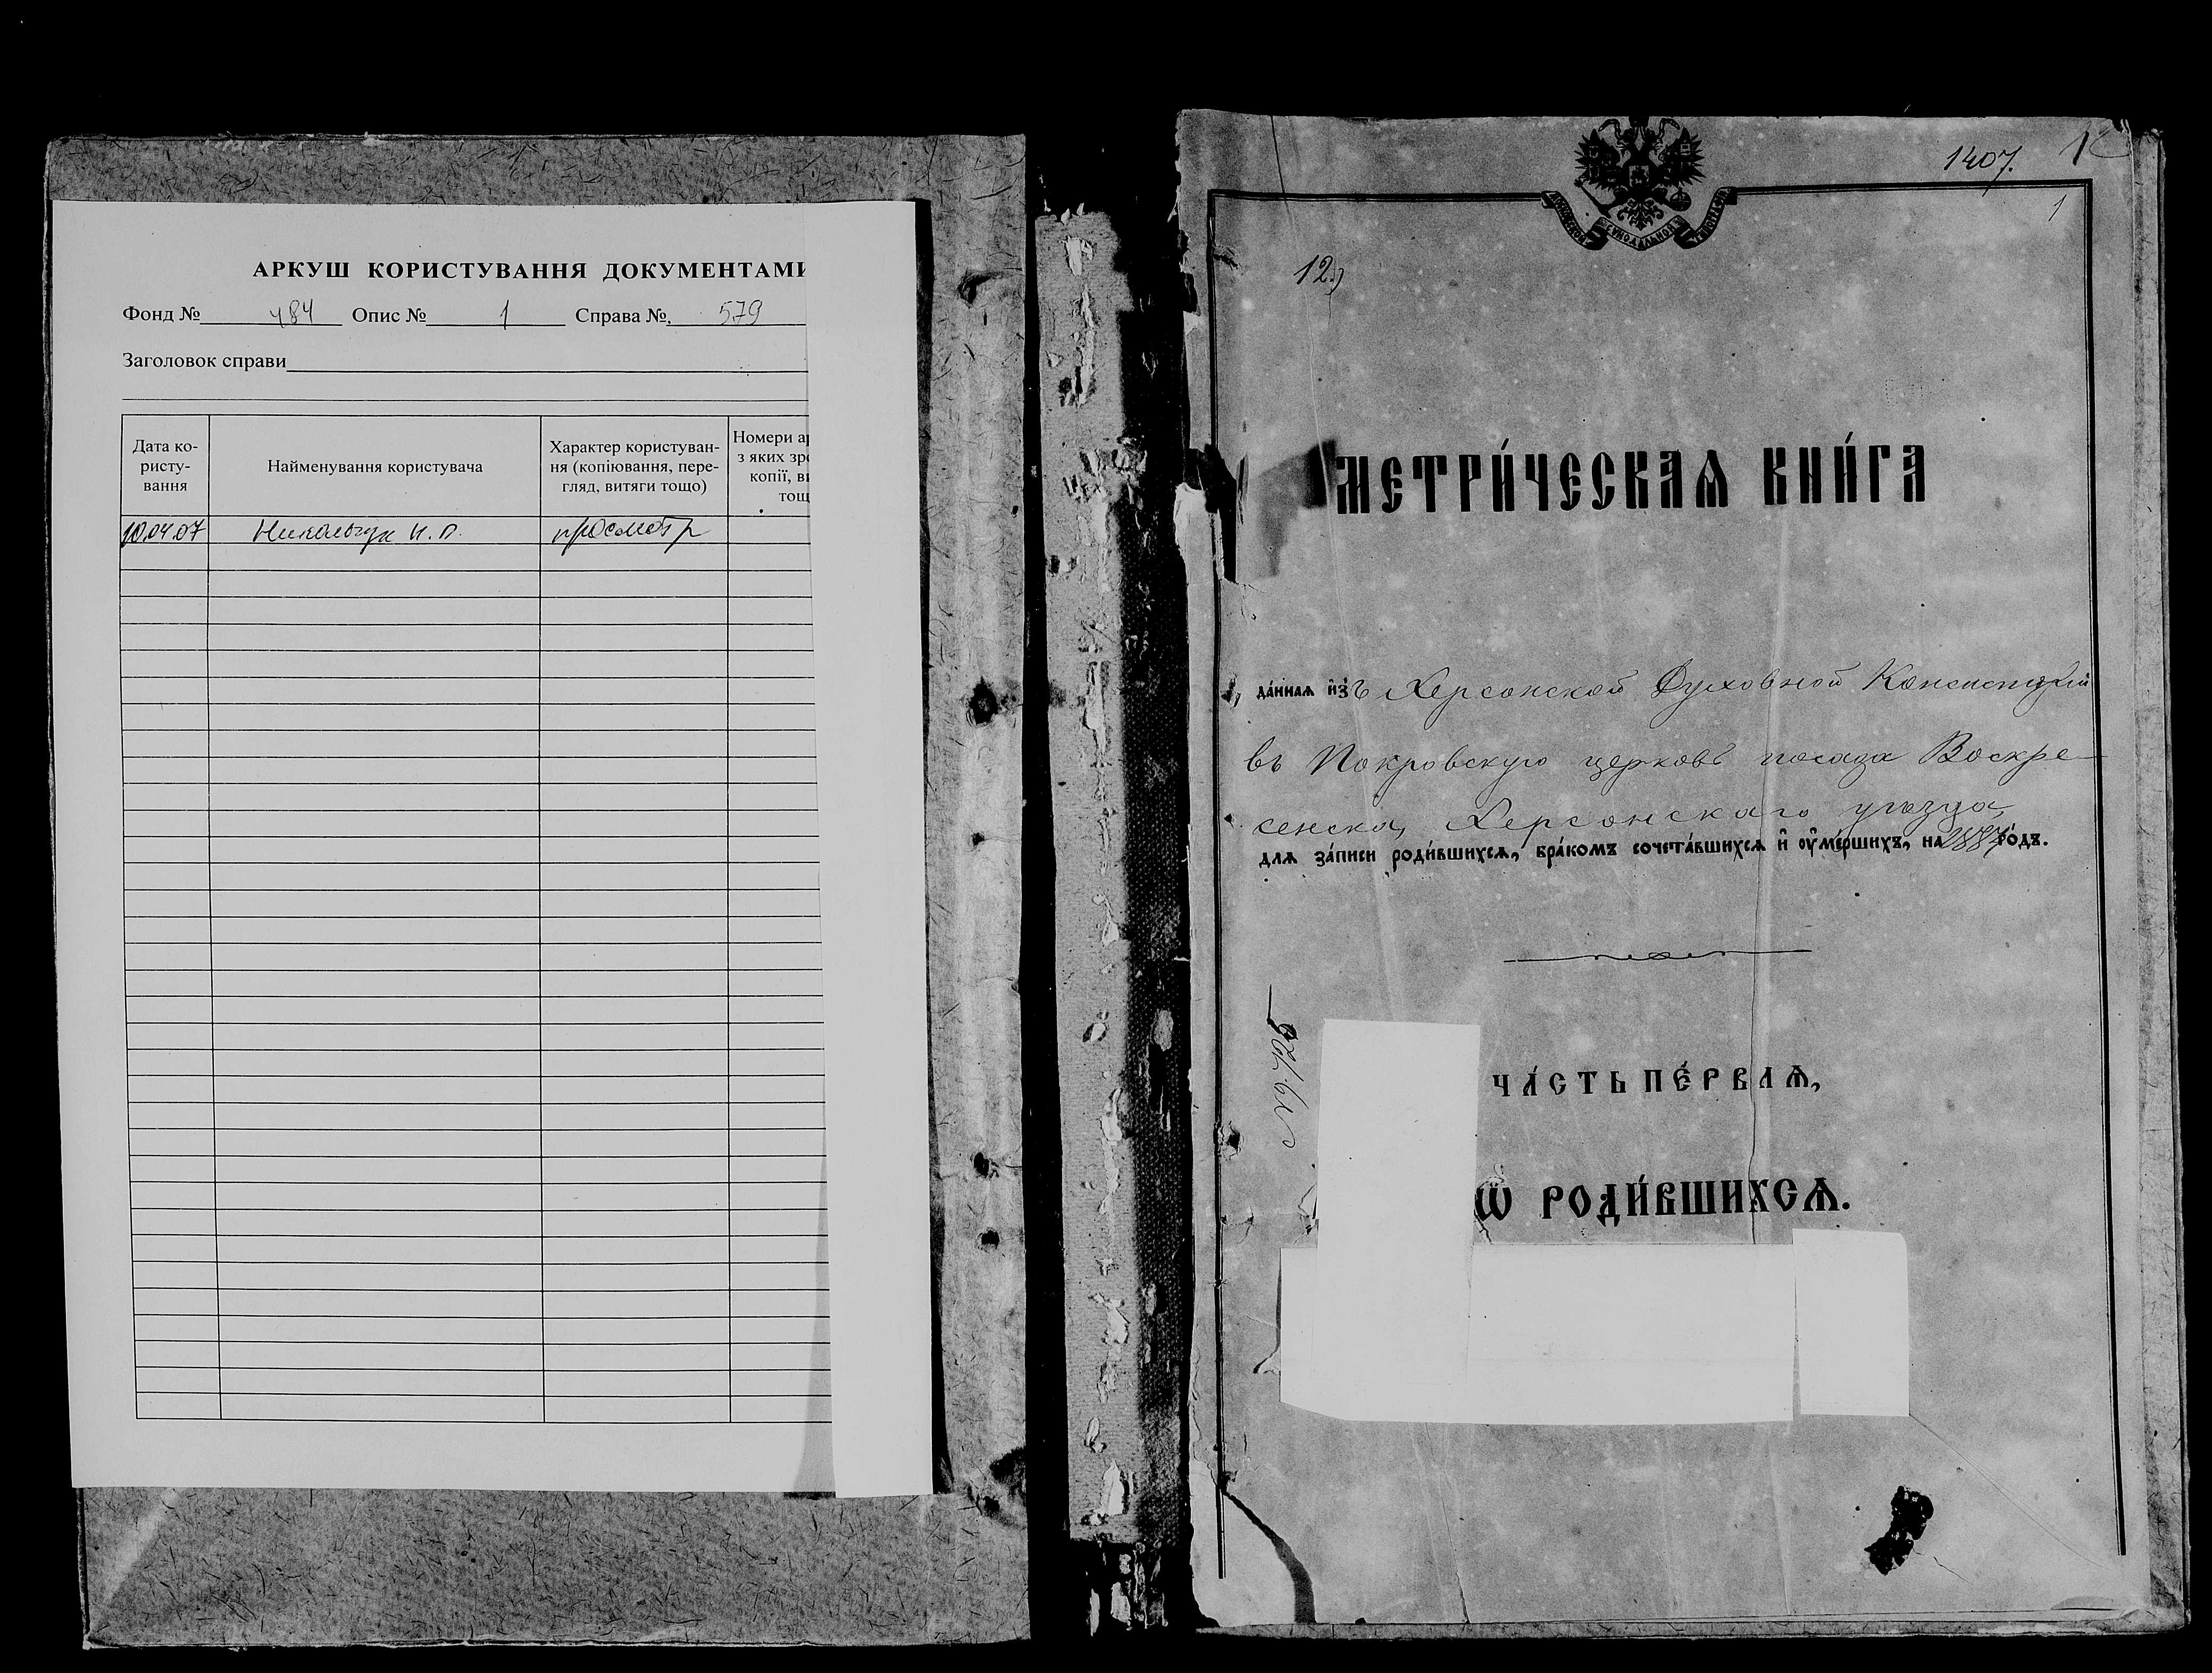 АРКУШ КОРИСТУВАННЯ ДОКУМЕНТАМИ
Фонд № 484 Опис № 1 Справа № 579
Заголовок справи
Дата ко-
ристу-
вання
Найменування користувача
Характер користуван-
ня (копіювання, пере-
гляд, витяги тощо)
Номери
з яких
копії,
10.04.07 Никольчук И. П. просмотр
1407.
1
МОСКОВСКОЙ СѴНОДАЛЬНОЙ ТИПОГРАФІИ
12.)
МЕТРИ́ЧЕСКАѦ КНИ́ГА
да́ннаѧ и҆зъ Херсонской Духовной Консисторіи
въ Покровскую церковь посада Воскре-
сенска, Херсонскаго уѣзда,
длѧ за́писи роди́вшихсѧ, бра́комъ сочета́вшихсѧ и҆ оу҆ме́ршихъ, на 1887 го́дъ.
ЧА́СТЬ ПЕ́РВАѦ,
Ѡ҆ РОДИ́ВШИХСѦ.